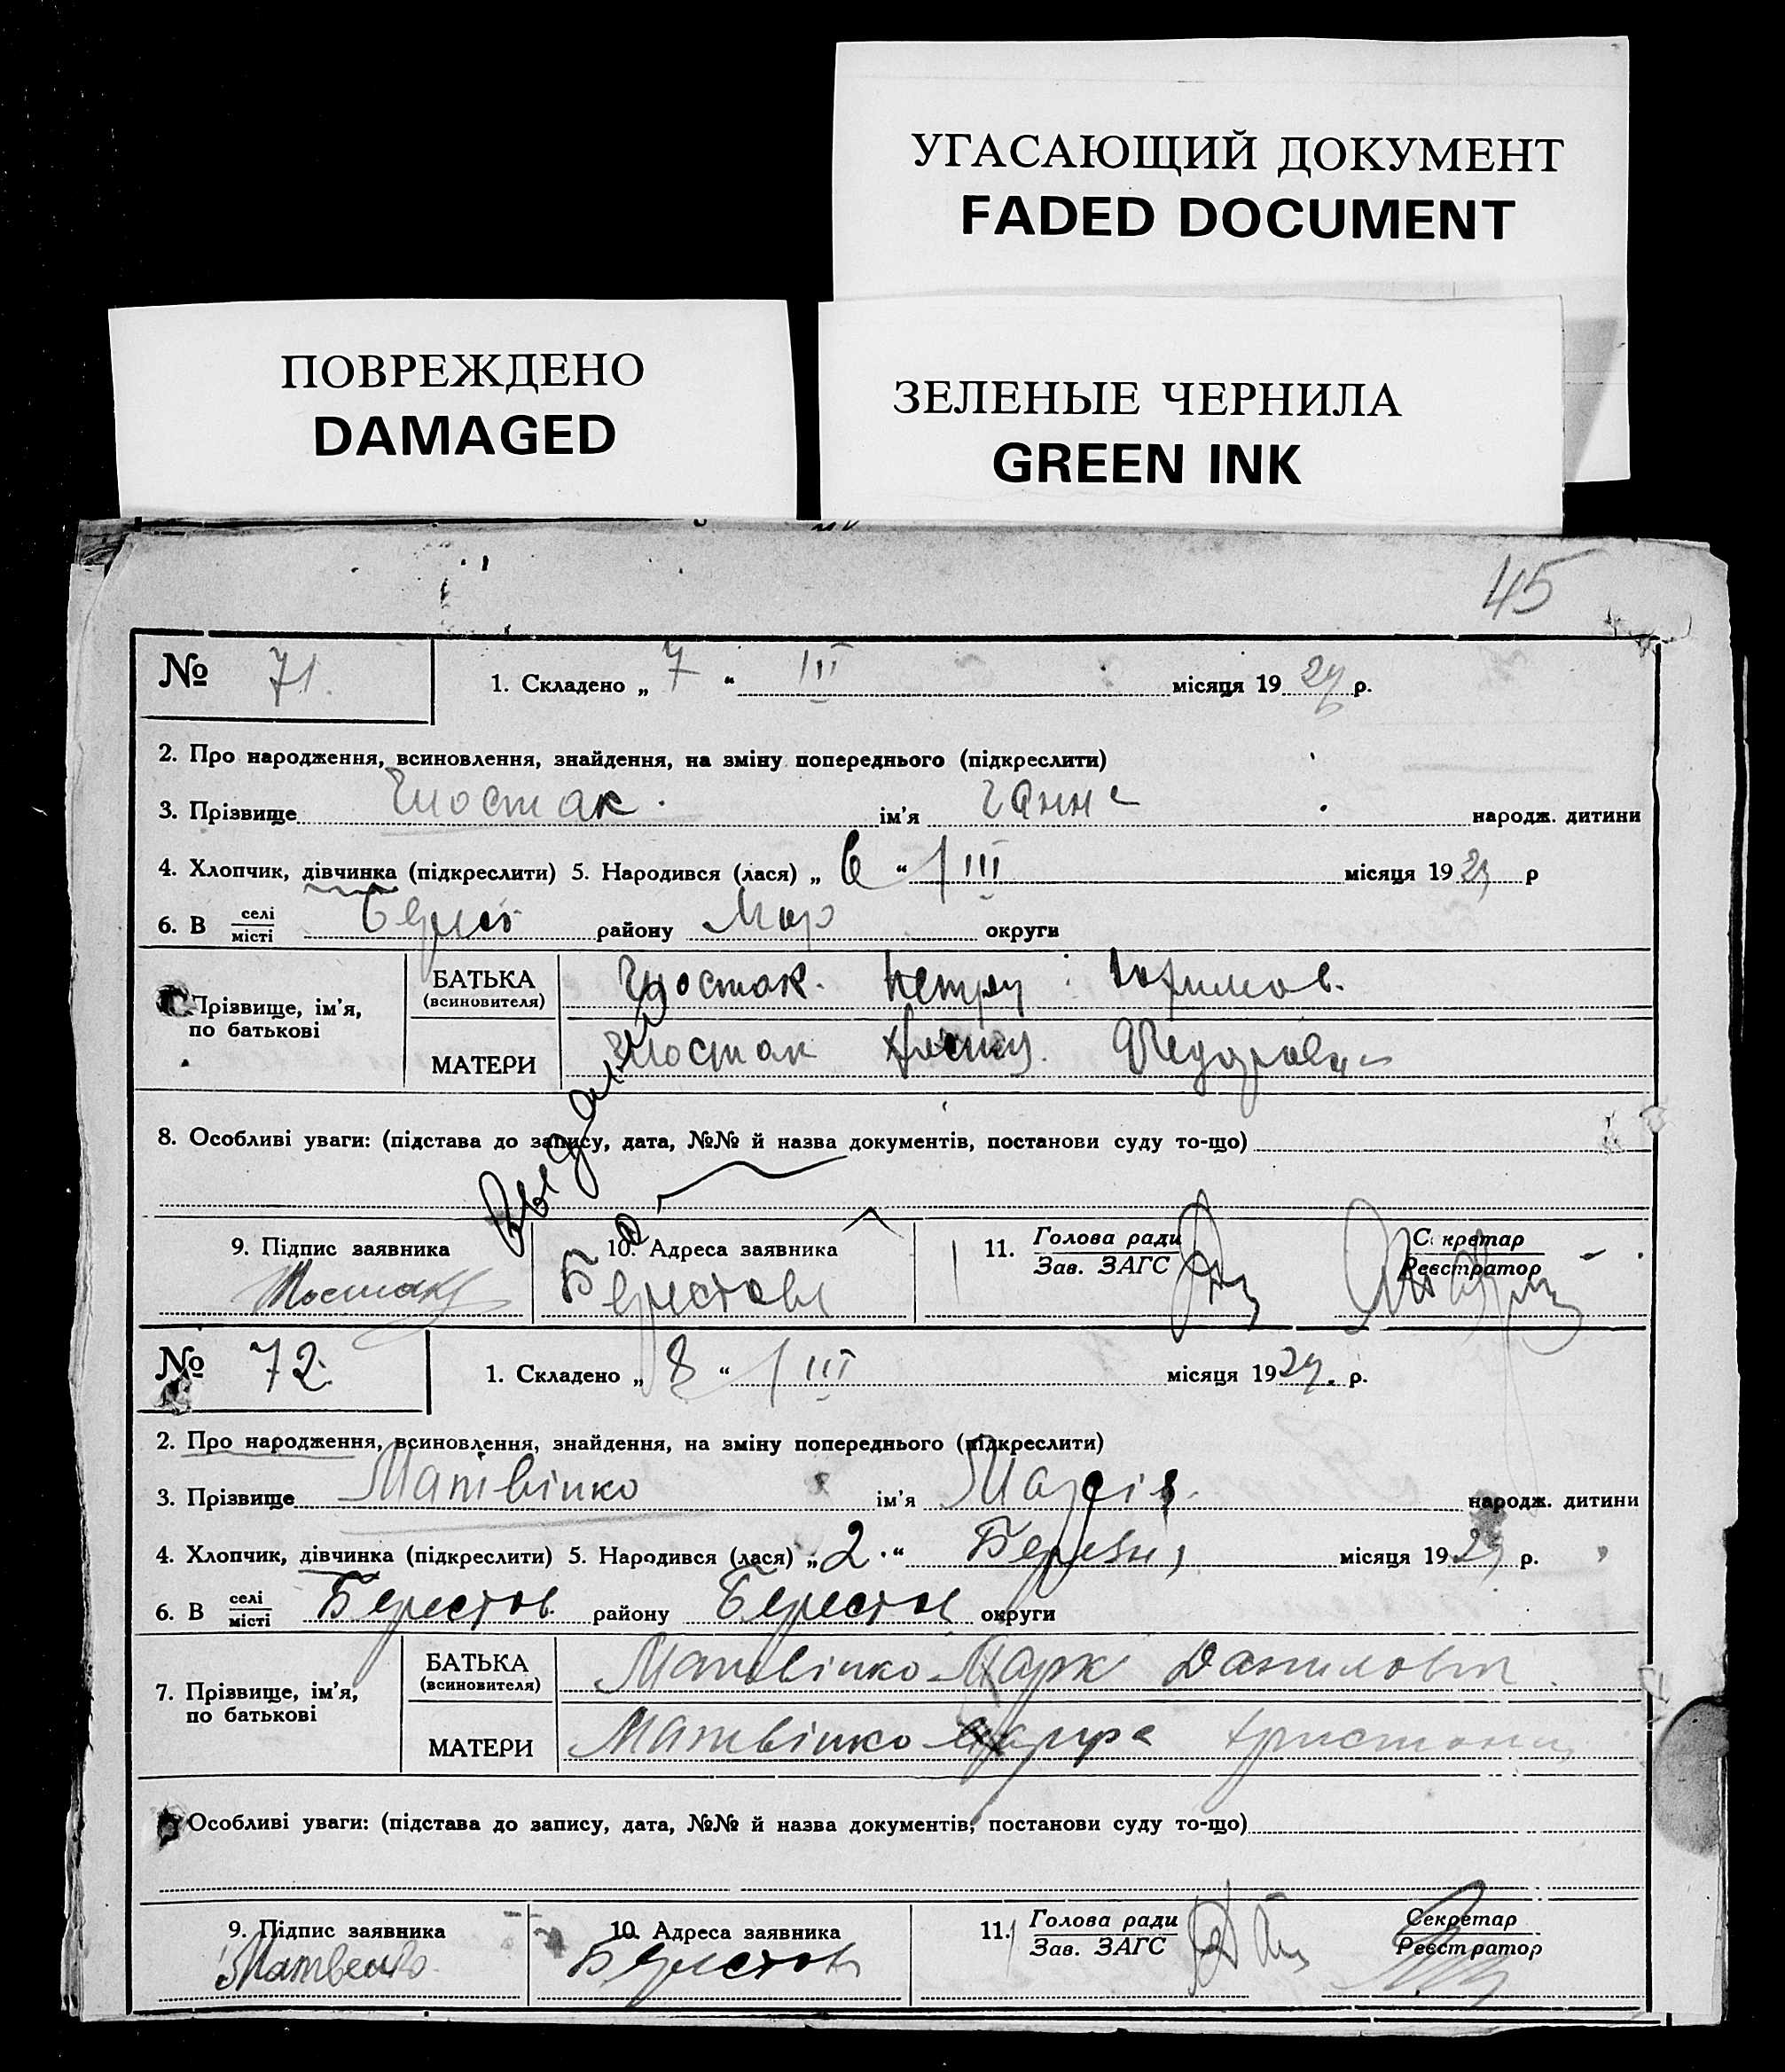 УГАСАЮЩИЙ ДОКУМЕНТ
FADED DOCUMENT
ПОВРЕЖДЕНО
DAMAGED
ЗЕЛЕНЫЕ ЧЕРНИЛА
GREEN INK
45
№ 71. 1. Складено „ 7 “ III місяця 19 29 р.
2. Про народження, всиновлення, знайдення, на зміну попереднього (підкреслити)
3. Прізвище Шостак ім'я Ганна народж. дитини
4. Хлопчик, дівчинка (підкреслити) 5. Народився (лася) „ 6 “ III місяця 19 29 р
6. В селі місті району округи
Прізвище, ім'я, по батькові
БАТЬКА (всиновителя) Шостак.
МАТЕРИ Шостак
8. Особливі уваги: (підстава до запису, дата, №№ й назва документів, постанови суду то-що)
9. Підпис заявника 10. Адреса заявника 11. Голова ради Зав. ЗАГС Секретар Реєстратор
Шостак Берестове
№ 72. 1. Складено „ 8 “ III місяця 19 29. р.
2. Про народження, всиновлення, знайдення, на зміну попереднього (підкреслити)
3. Прізвище Матвіико ім'я Марія народж. дитини
4. Хлопчик, дівчинка (підкреслити) 5. Народився (лася) „ 2 “ Березня місяця 19 29 р.
6. В селі місті Берестов району Берестов округи
7. Прізвище, ім'я, по батькові
БАТЬКА (всиновителя) Матвіико Марк Данилович
МАТЕРИ Матвіико
Особливі уваги: (підстава до запису, дата, №№ й назва документів, постанови суду то-що)
9. Підпис заявника 10. Адреса заявника 11. Голова ради Зав. ЗАГС Секретар Реєстратор
Берестов